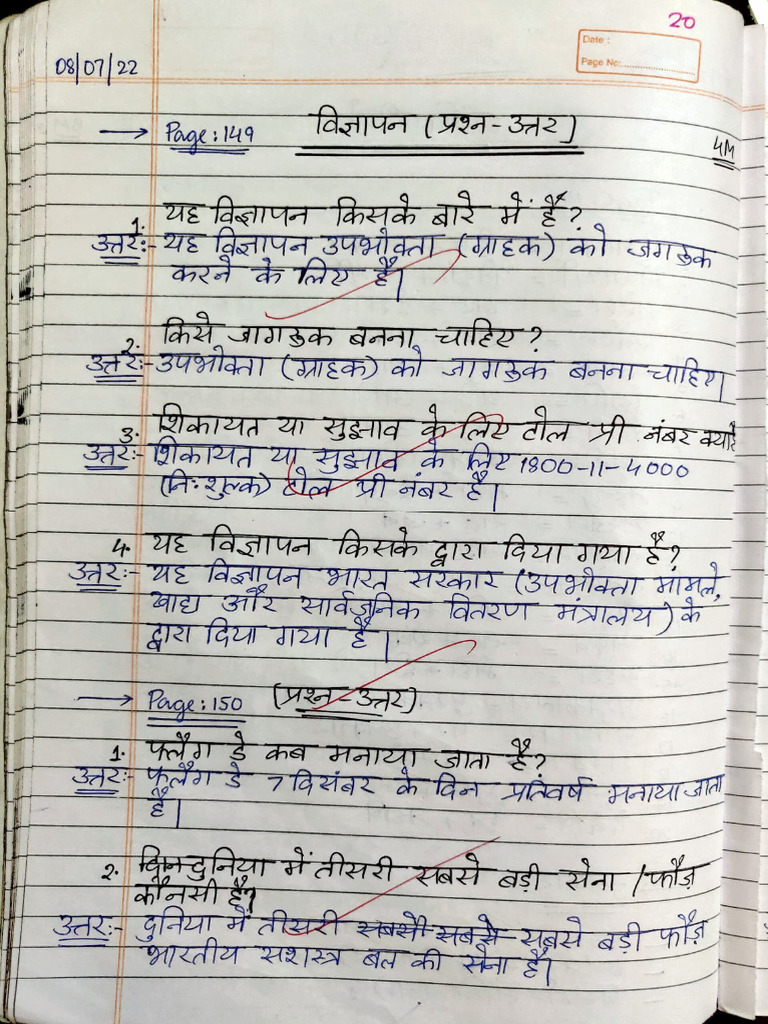 20
Date :
Page No:
08/07/22
→ Page: 149 विज्ञापन (प्रश्न-उत्तर)
4M
1. यह विज्ञापन किसके बारे में है?
उत्तर:- यह विज्ञापन उपभोक्ता (ग्राहक) को जगरुक
करने के लिए है।
2. किसे जागरुक बनना चाहिए?
उत्तर:- उपभोक्ता (ग्राहक) को जागरुक बनना चाहिए।
3. शिकायत या सुझाव के लिए टोल फ्री नंबर क्या है
उत्तर:- शिकायत या सुझाव के लिए 1800-11-4000
(नि:शुल्क) टोल फ्री नंबर है।
4. यह विज्ञापन किसके द्वारा दिया गया है?
उत्तर:- यह विज्ञापन भारत सरकार (उपभोक्ता मामले,
खाद्य और सार्वजनिक वितरण मंत्रालय) के
द्वारा दिया गया है।
→ Page: 150 (प्रश्न-उत्तर).
1. फ्लैग डे कब मनाया जाता है?
उत्तर:- फ्लैग डे 7 दिसंबर के दिन प्रतिवर्ष मनाया जाता
है।
2. दुनिया में तीसरी सबसे बड़ी सेना / फौज़
कौनसी है?
उत्तर:- दुनिया में तीसरी सबसे बड़ी फौज़
भारतीय सशस्त्र बल की सेना है।